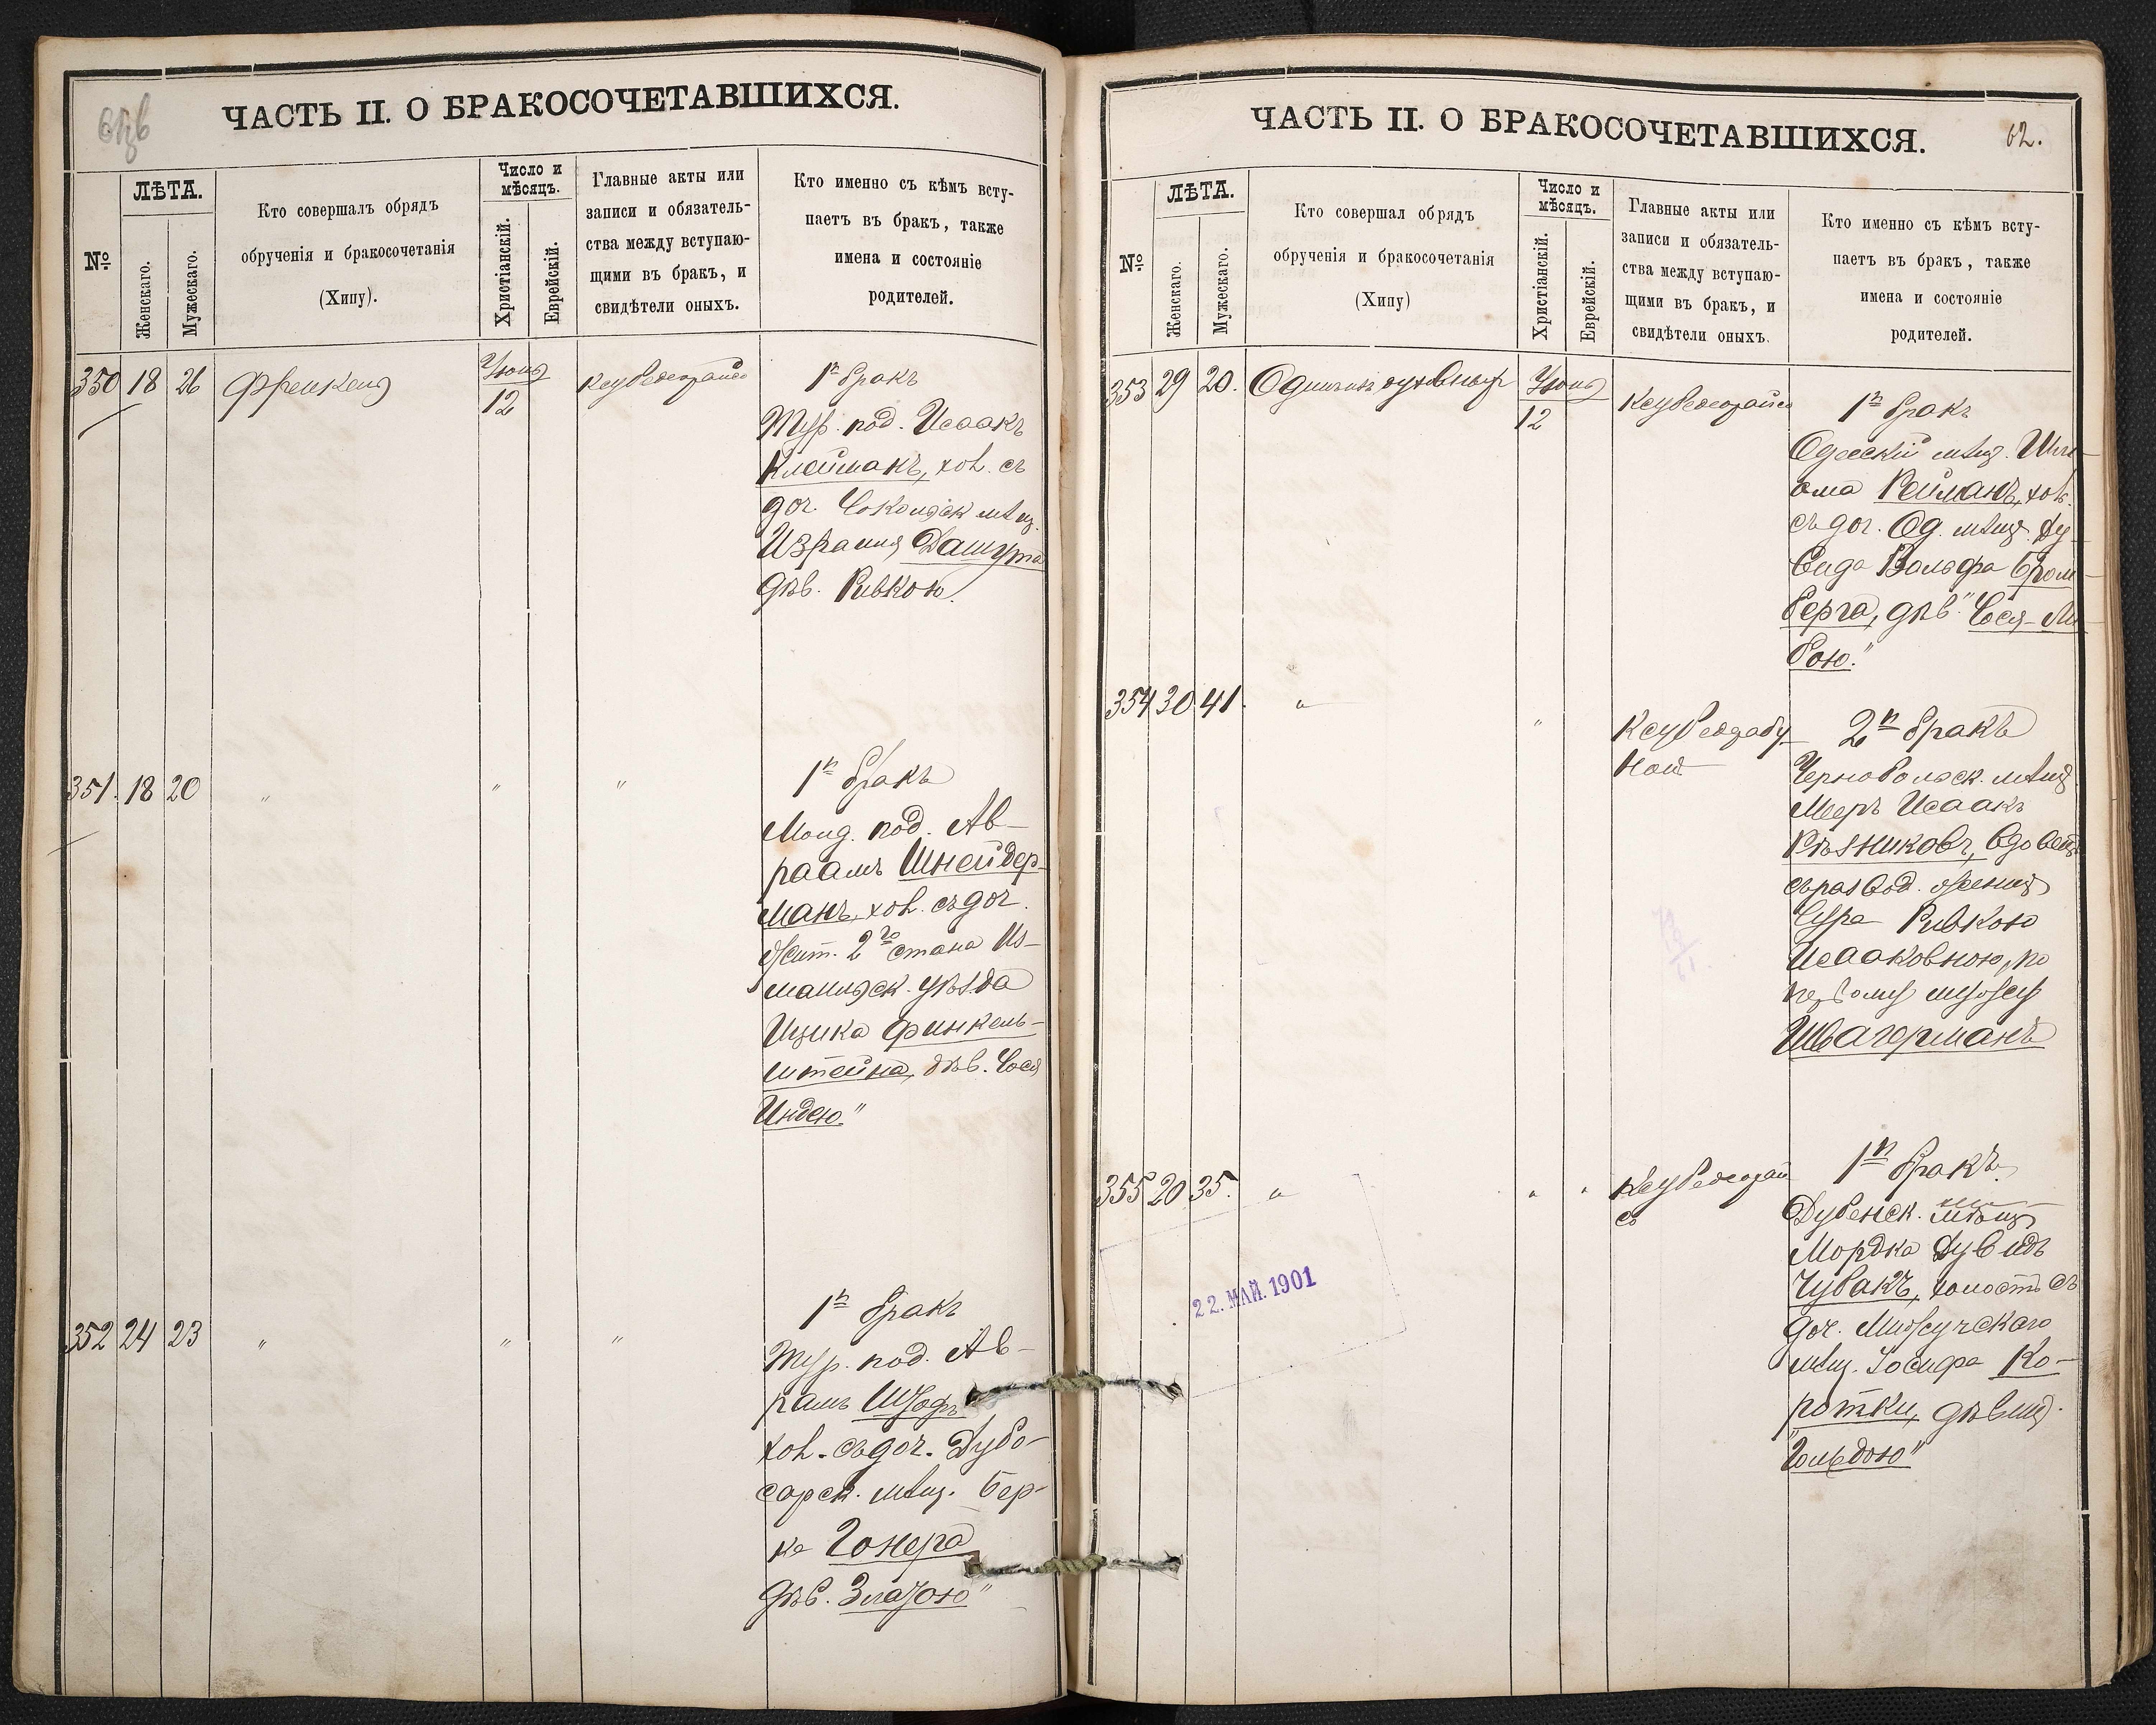 ЧАСТЬ II. О БРАКОСОЧЕТАВШИХСЯ.
№
ЛѢТА.
Женскаго.
Мужескаго.
Кто совершалъ обрядъ
обрученія и бракосочетанія
(Хипу).
Число и
мѣсяцъ.
Христіанскій.
Еврейскій.
Главные акты или
записи и обязатель-
ства между вступаю-
щими въ бракъ, и
свидѣтели оныхъ.
Кто именно съ кѣмъ всту-
паетъ въ бракъ, также
имена и состояніе
родителей.
350 18 26 Френкель Іюня 12
1й бракъ
Тур. под. Исаакъ
Клейманъ, хол. съ
доч. мѣщ.
Израиля Дашута
дѣв. Ривкою.
351. 18 20 " " "
1й бракъ
под. Ав-
раамъ Шнейдер-
манъ, хол. съ доч.
жит. 2го стана Из-
маильск. уѣзда
Ицика Финкель-
штейна, дѣв. Сося
Индею"
352 24 23 " " "
1й бракъ
Тур. под. Ав-
рамъ
хол. съ доч. Дубо-
сарск. мѣщ. Бер-
ка Гонера
дѣв. Златою"
ЧАСТЬ II. О БРАКОСОЧЕТАВШИХСЯ.
62.
№
ЛѢТА.
Женскаго.
Мужескаго.
Кто совершал обрядъ
обрученія и бракосочетанія
(Хипу)
Число и
мѣсяцъ.
Христіанскій.
Еврейскій.
Главные акты или
записи и обязатель-
ства между вступаю-
щими въ бракъ, и
свидѣтели оныхъ.
Кто именно съ кѣмъ всту-
паетъ въ бракъ, также
имена и состояніе
родителей.
353 29 20. духовный Іюня 12
1й бракъ
Одесскій мѣщ. Шль-
ома Рейманъ, хол.
съ доч. Од. мѣщ. Ду-
вида Вольфа Бром-
берга, дѣв. "Сося-Ли-
бою."
354 30 41. " "
2й бракъ
Чернобольск. мѣщ.
Мееръ Исаакъ
Рѣзниковъ, вдовецъ
съ развод. женщ.
Сура Ривкою
Исааковною, по
первому мужу
Швагерманъ
355 20 35. " " "
1й бракъ.
Дубенск. мѣщ.
Мордка Дувидъ
Чубакъ, холостъ съ
доч. Межеричскаго
мѣщ. Іосифа Ко-
ротки, дѣвиц.
"Гольдою"
22. МАЙ. 1901